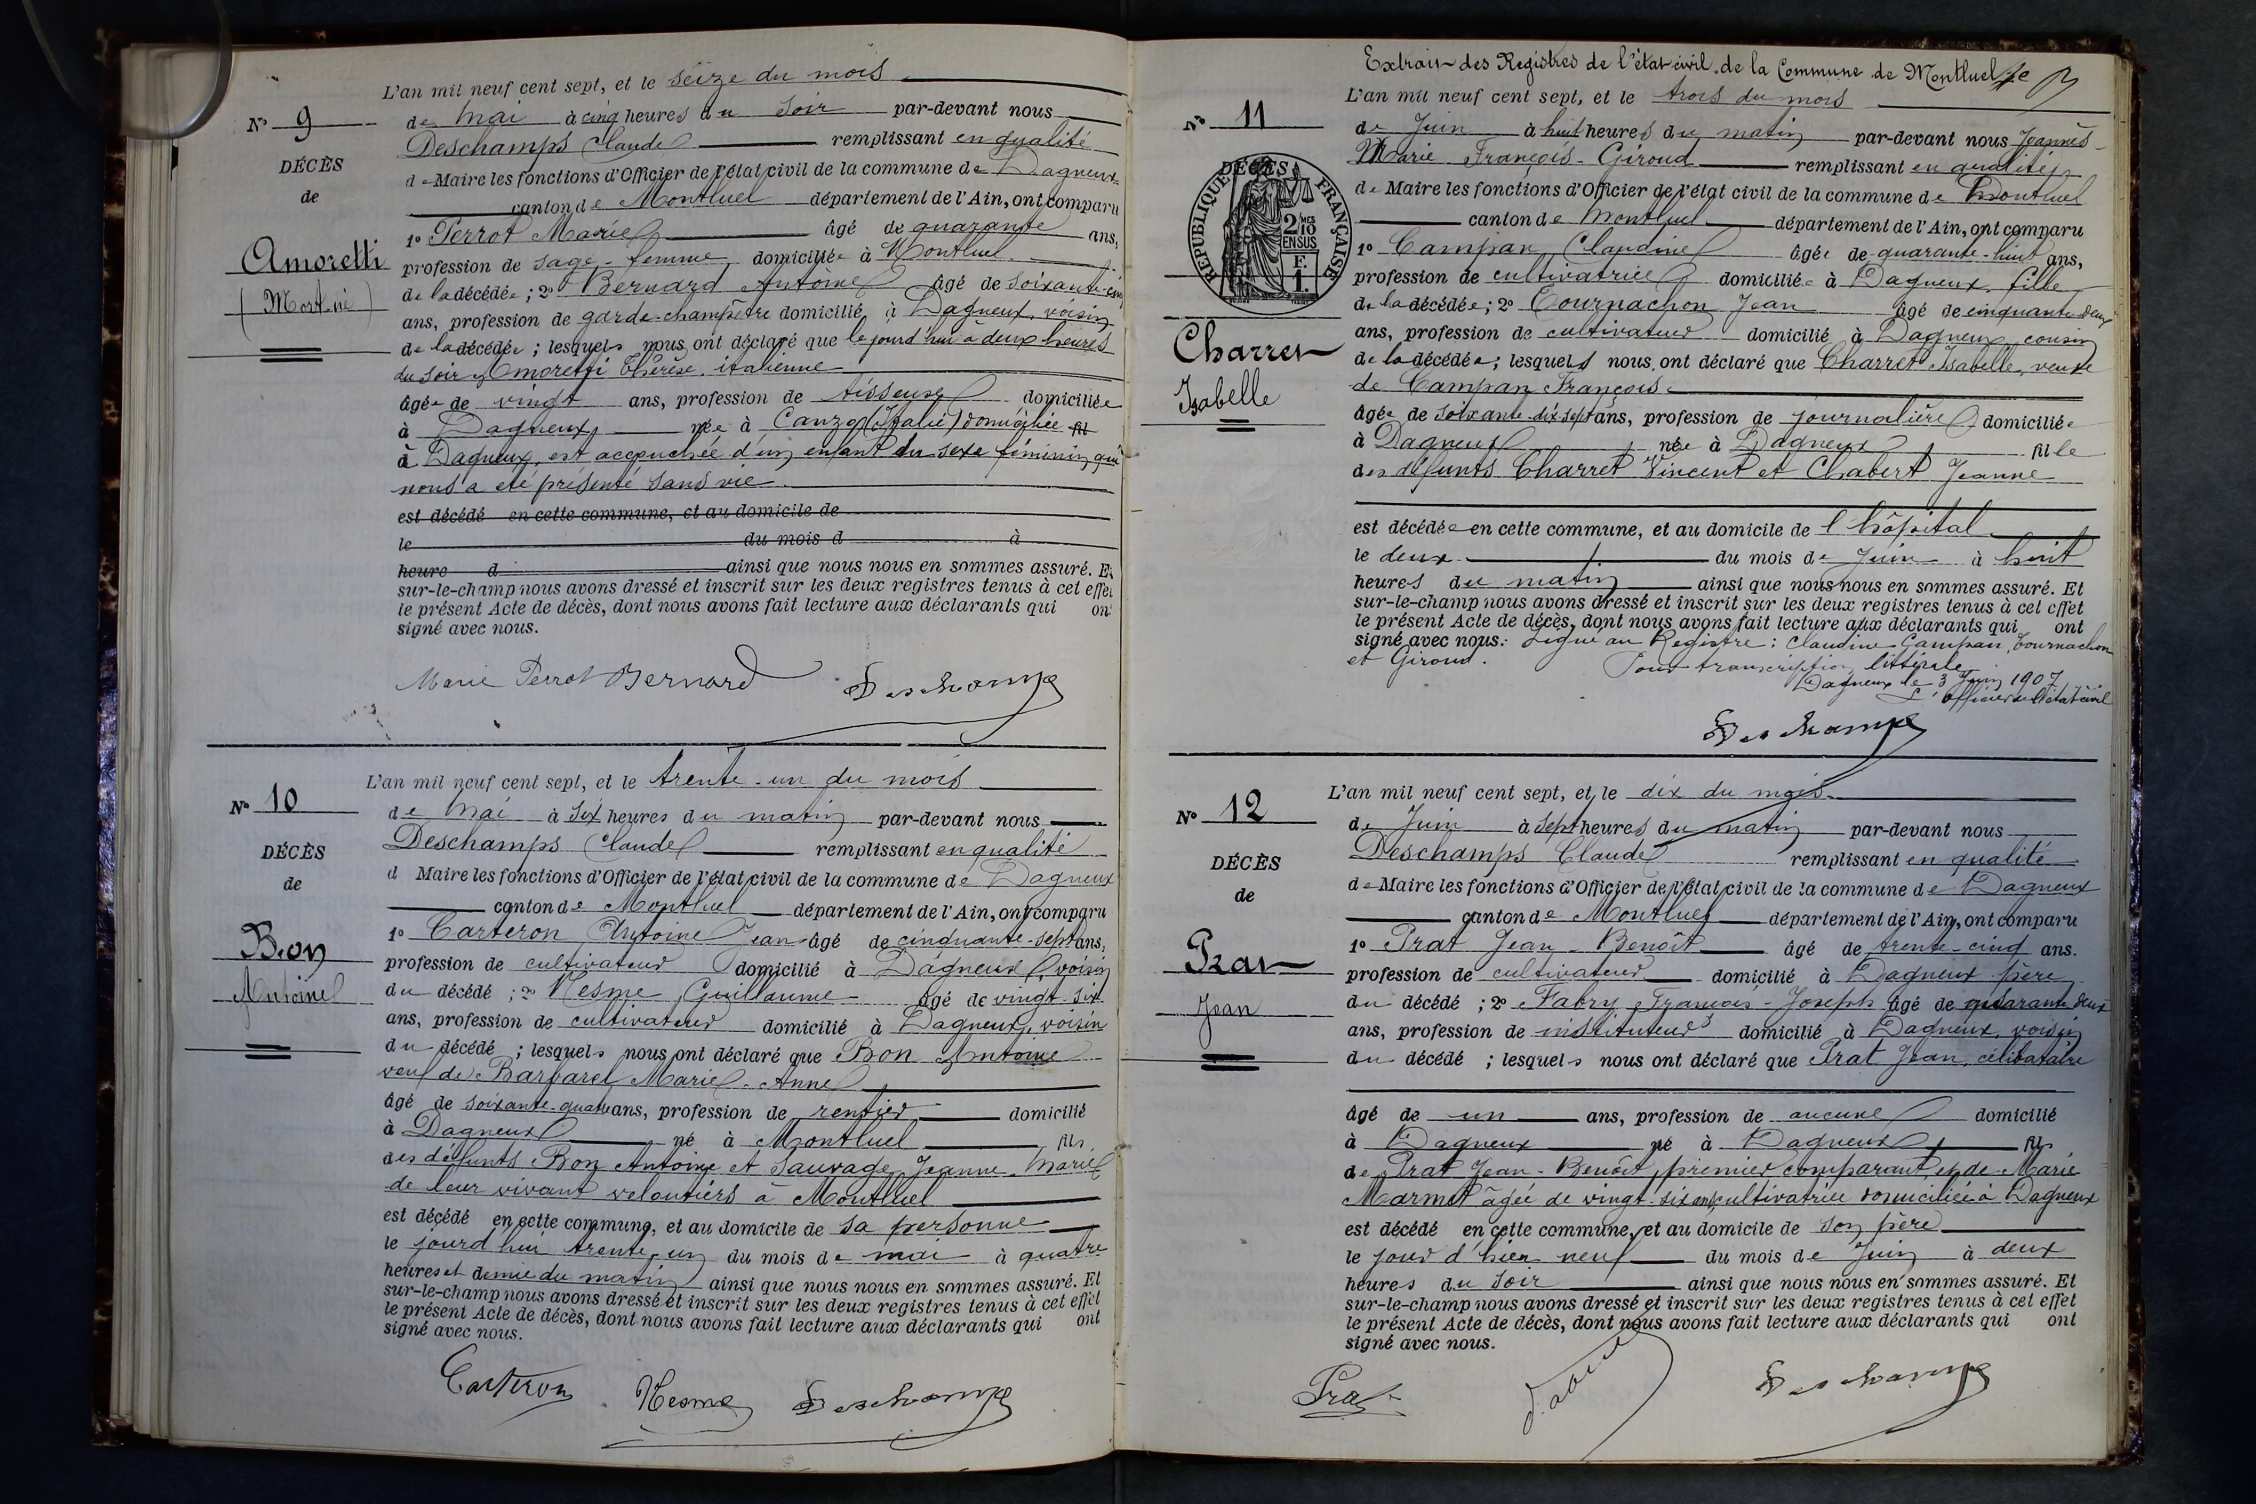 N° 9
DÉCÈS
de
Amoretti
(Mort-né)
L'an mil neuf cent sept, et le seize du mois
de Mai à cinq heures du soir par-devant nous
Deschamps Claude remplissant en qualité
de Maire les fonctions d'Officier de l'état civil de la commune de Dagneux
canton de Montluel département de l'Ain, ont comparu
1° Perrot Marie âgé de quarante ans,
profession de sage-femme domiciliée à Montluel
de la décédée ; 2° Bernard Antoine âgé de soixante-
ans, profession de garde-champêtre domicilié à Dagneux, voisin
de la décédée ; lesquels nous ont déclaré que le jourd'hui à deux heures
du soir Amoretti Thérèse, italienne
âgée de vingt ans, profession de tisseuse domiciliée
à Dagneux, née à Canzo (Italie) domiciliée fil
à Dagneux, est accouchée d'un enfant du sexe féminin qui
nous a été présenté sans vie.
est décédé en cette commune, et au domicile de
le du mois d à
heure d ainsi que nous nous en sommes assuré. Et
sur-le-champ nous avons dressé et inscrit sur les deux registres tenus à cet effet
le présent Acte de décès, dont nous avons fait lecture aux déclarants qui ont
signé avec nous.
Marie Perrot Bernard Deschamps
N° 10
DÉCÈS
de
Bon
Antoine
L'an mil neuf cent sept, et le trente-un du mois
de Mai à six heures du matin par-devant nous
Deschamps Claude remplissant en qualité
d Maire les fonctions d'Officier de l'état civil de la commune de Dagneux
canton de Montluel département de l'Ain, ont comparu
1° Carteron Antoine Jean âgé de cinquante-sept ans,
profession de cultivateur domicilié à Dagneux voisin
du décédé ; 2° Nesme Guillaume âgé de vingt-six
ans, profession de cultivateur domicilié à Dagneux, voisin
du décédé ; lesquels nous ont déclaré que Bon Antoine
veuf de Barbarel Marie-Anne
âgé de soixante-quatre ans, profession de rentier domicilié
à Dagneux né à Montluel fils
des défunts Bon Antoine et Sauvage Jeanne-Marie
de leur vivant veloutiers à Montluel
est décédé en cette commune, et au domicile de sa personne
le jourd'hui trente-un du mois de mai à quatre
heures et demie du matin ainsi que nous nous en sommes assuré. Et
sur-le-champ nous avons dressé et inscrit sur les deux registres tenus à cet effet
le présent Acte de décès, dont nous avons fait lecture aux déclarants qui ont
signé avec nous.
Carteron Nesme Deschamps
Extrait des Registres de l'état civil de la Commune de Montluel
N° 11
DÉCÈS
RÉPUBLIQUE FRANÇAISE
2/10 MES
EN SUS
F.
1.
Charret
Isabelle
L'an mil neuf cent sept, et le trois du mois
de Juin à huit heures du matin par-devant nous Joannès-
Marie François-Giroud remplissant en qualité
de Maire les fonctions d'Officier de l'état civil de la commune de Montluel
canton de Montluel département de l'Ain, ont comparu
1° Campan Claudine âgée de quarante-huit ans,
profession de cultivatrice domiciliée à Dagneux, fille
de la décédée ; 2° Tournachon Jean âgé de cinquante-deux
ans, profession de cultivateur domicilié à Dagneux, cousin
de la décédée ; lesquels nous ont déclaré que Charret Isabelle, veuve
de Campan François
âgée de soixante-dix-sept ans, profession de journalière domiciliée
à Dagneux née à Dagneux fille
des défunts Charret Vincent et Chabert Jeanne
est décédée en cette commune, et au domicile de l'hôpital
le deux du mois de Juin à huit
heures du matin ainsi que nous nous en sommes assuré. Et
sur-le-champ nous avons dressé et inscrit sur les deux registres tenus à cet effet
le présent Acte de décès, dont nous avons fait lecture aux déclarants qui ont
signé avec nous. Signé au Registre : Claudine Campan, Tournachon
et Giroud. Pour transcription littérale
Dagneux le 3 Juin 1907
L'officier de l'état civil
Deschamps
N° 12
DÉCÈS
de
Prat
Jean
L'an mil neuf cent sept, et le dix du mois
de Juin à sept heures du matin par-devant nous
Deschamps Claude remplissant en qualité
de Maire les fonctions d'Officier de l'état civil de la commune de Dagneux
canton de Montluel département de l'Ain, ont comparu
1° Prat Jean-Benoît âgé de trente-cinq ans.
profession de cultivateur domicilié à Dagneux père
du décédé ; 2° Fabry François-Joseph âgé de quarante-deux
ans, profession de instituteur domicilié à Dagneux, voisin
du décédé ; lesquels nous ont déclaré que Prat Jean, célibataire
âgé de un ans, profession de aucune domicilié
à Dagneux né à Dagneux fils
de Prat Jean-Benoît, premier comparant, et de Marie
Marmet âgée de vingt-six ans, cultivatrice domiciliée à Dagneux
est décédé en cette commune, et au domicile de son père
le jour d'hier neuf du mois de Juin à deux
heures du soir ainsi que nous nous en sommes assuré. Et
sur-le-champ nous avons dressé et inscrit sur les deux registres tenus à cet effet
le présent Acte de décès, dont nous avons fait lecture aux déclarants qui ont
signé avec nous.
Prat Deschamps